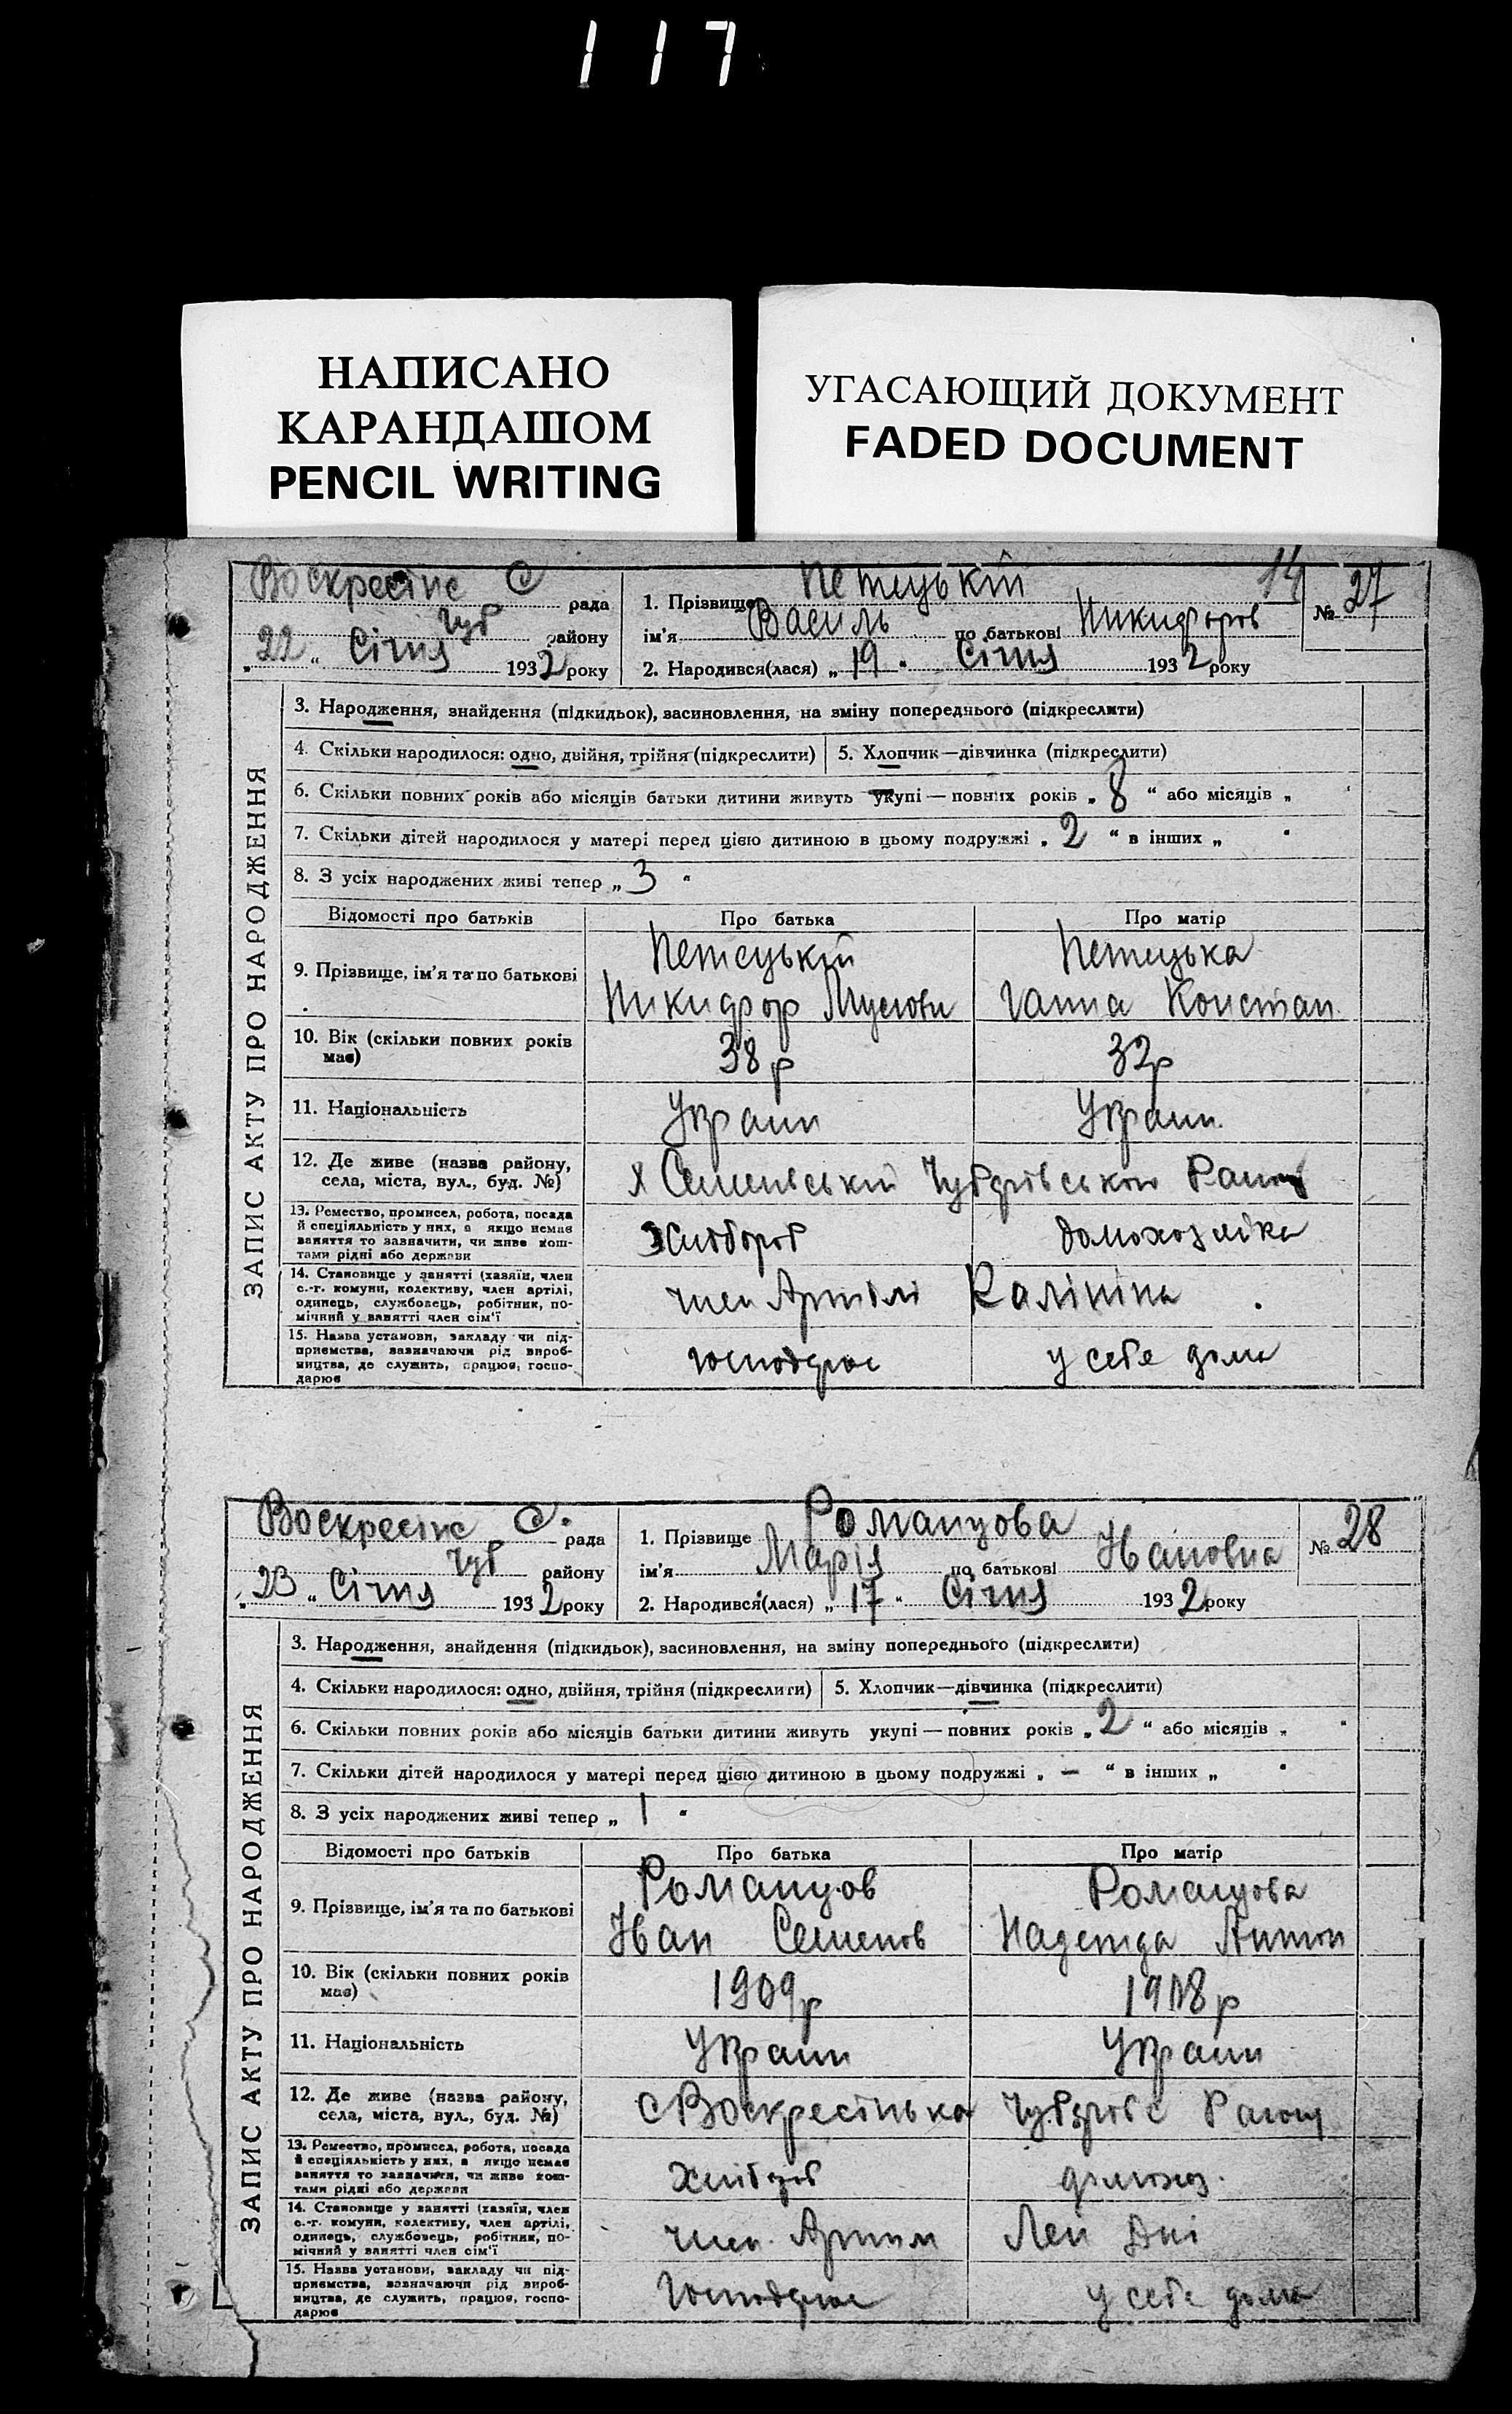 117
НАПИСАНО
КАРАНДАШОМ
PENCIL WRITING
УГАСАЮЩИЙ ДОКУМЕНТ
FADED DOCUMENT
14
Воскресінс С рада
Чуб району
„22“ Січня 1932 року
1. Прізвище Петецькій
ім'я Василь по батькові Никифоров
2. Народився(лася) „19“ Січня 1932 року
№ 27
ЗАПИС АКТУ ПРО НАРОДЖЕННЯ
3. Народження, знайдення (підкидьок), засиновлення, на зміну попереднього (підкреслити)
4. Скільки народилося: одно, двійня, трійня (підкреслити) 5. Хлопчик—дівчинка (підкреслити)
6. Скільки повних років або місяців батьки дитини живуть укупі — повних років „8“ або місяців „ “
7. Скільки дітей народилося у матері перед цією дитиною в цьому подружжі „2“ в інших „ “
8. З усіх народжених живі тепер „3“
Відомості про батьків Про батька Про матір
9. Прізвище, ім'я та по батькові
Петецькій Петецька
Никифор Ганна Констан
10. Вік (скільки повних років має) 38р 32р
11. Національність Украин Украин.
12. Де живе (назва району, села, міста, вул., буд. №)
Х Семенівській
13. Ремество, промисел, робота, посада й спеціяльність у них, а якщо немає заняття то зазначити, чи живе коштами рідні або держави
Хлібороб домохозяіка
14. Становище у занятті (хазяїн, член с.-г. комуни, колективу, член артілі, одинець, службовець, робітник, помічний у занятті член сім'ї
член Артілі Калініна
15. Назва установи, закладу чи підприємства, зазначаючи рід виробництва, де служить, працює, господарює
господрює у себе дома
Воскресінс С. рада
Чуб району
„23“ Січня 1932 року
1. Прізвище Романцова
ім'я Марія по батькові Івановна
2. Народився(лася) „17“ Січня 1932 року
№ 28
ЗАПИС АКТУ ПРО НАРОДЖЕННЯ
3. Народження, знайдення (підкидьок), засиновлення, на зміну попереднього (підкреслити)
4. Скільки народилося: одно, двійня, трійня (підкреслити) 5. Хлопчик—дівчинка (підкреслити)
6. Скільки повних років або місяців батьки дитини живуть укупі — повних років „2“ або місяців „ “
7. Скільки дітей народилося у матері перед цією дитиною в цьому подружжі „—“ в інших „ “
8. З усіх народжених живі тепер „1“
Відомості про батьків Про батька Про матір
9. Прізвище, ім'я та по батькові
Романцов Романцова
Іван Семенов Надежда Антон
10. Вік (скільки повних років має) 1909р 1908р
11. Національність Украин Украин
12. Де живе (назва району, села, міста, вул., буд. №)
с Воскресінька
13. Ремество, промисел, робота, посада й спеціяльність у них, а якщо немає заняття то зазначити, чи живе коштами рідні або держави
Хлібороб домохоз.
14. Становище у занятті (хазяїн, член с.-г. комуни, колективу, член артілі, одинець, службовець, робітник, помічний у занятті член сім'ї
член Лен Дні
15. Назва установи, закладу чи підприємства, зазначаючи рід виробництва, де служить, працює, господарює
Господрює у себе дома